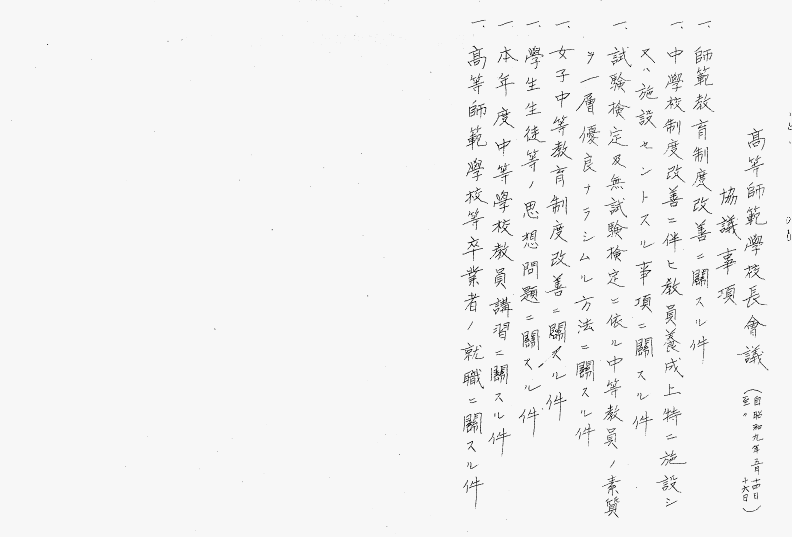 高等師範學校長會議（自昭和九年五月十四日
至〃十六日）
協議事項
一、師範教育制度改善ニ關スル件
一、中學校制度改善ニ伴ヒ教員養成上特ニ施設シ
又ハ施設セントスル事項ニ關スル件
一、試驗検定及無試驗検定ニ依ル中等教員ノ素質
ヲ一層優良ナラシムル方法ニ關スル件
一、女子中等教育制度改善ニ關スル件
一、學生生徒等ノ思想問題ニ關スル件
一、本年度中等學校教員講習ニ關スル件
一、高等師範學校等卒業者ノ就職ニ關スル件